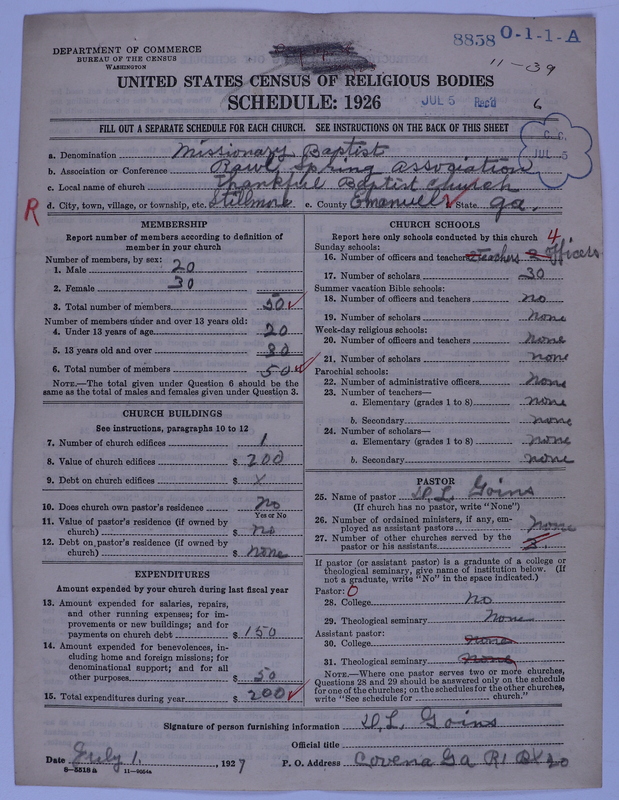 8858 O-1-1-A
DEPARTMENT OF COMMERCE
BUREAU OF THE CENSUS
WASHINGTON
11-39
UNITED STATES CENSUS OF RELIGIOUS BODIES
SCHEDULE: 1926
JUL 5 Rec'd
6
FILL OUT A SEPARATE SCHEDULE FOR EACH CHURCH. SEE INSTRUCTIONS ON THE BACK OF THIS SHEET
JUL 5
a. Denomination Missionary Baptist
b. Association or Conference Rawl Spring Association
c. Local name of church Thankful Baptist Church
R
d. City, town, village, or township, etc. Stillmore e. County Emanuel State Ga.
MEMBERSHIP
Report number of members according to definition of
member in your church
Number of members, by sex:
1. Male 20
2. Female 30
3. Total number of members 50
Number of members under and over 13 years old:
4. Under 13 years of age 20
5. 13 years old and over 30
6. Total number of members 50
NOTE.—The total given under Question 6 should be the
same as the total of males and females given under Question 3.
CHURCH BUILDINGS
See instructions, paragraphs 10 to 12
7. Number of church edifices 1
8. Value of church edifices $ 200
9. Debt on church edifices $ x
10. Does church own pastor's residence? No
Yes or No
11. Value of pastor's residence (if owned by
church) $ no
12. Debt on pastor's residence (if owned by
church) $ none
EXPENDITURES
Amount expended by your church during last fiscal year
13. Amount expended for salaries, repairs,
and other running expenses; for im-
provements or new buildings; and for
payments on church debt $ 150
14. Amount expended for benevolences, in-
cluding home and foreign missions; for
denominational support; and for all
other purposes $ 50
15. Total expenditures during year $ 200
CHURCH SCHOOLS
Report here only schools conducted by this church 4
Sunday schools:
16. Number of officers and teachers Teachers 2 officers
17. Number of scholars 30
Summer vacation Bible schools:
18. Number of officers and teachers no
19. Number of scholars none
Week-day religious schools:
20. Number of officers and teachers None
21. Number of scholars none
Parochial schools:
22. Number of administrative officers None
23. Number of teachers—
a. Elementary (grades 1 to 8) None
b. Secondary none
24. Number of scholars—
a. Elementary (grades 1 to 8) none
b. Secondary none
PASTOR
25. Name of pastor W. L. Goins
(If church has no pastor, write "None")
26. Number of ordained ministers, if any, em-
ployed as assistant pastors None
27. Number of other churches served by the
pastor or his assistants 3.
If pastor (or assistant pastor) is a graduate of a college or
theological seminary, give name of institution below. (If
not a graduate, write "No" in the space indicated.)
Pastor: 0
28. College No
29. Theological seminary None
Assistant pastor:
30. College None
31. Theological seminary None
NOTE.—Where one pastor serves two or more churches,
Questions 28 and 29 should be answered only on the schedule
for one of the churches; on the schedules for the other churches,
write "See schedule for church."
Signature of person furnishing information W. L. Goins
Official title
Date July 1, 1927 P. O. Address Covena Ga R1 Bx 20
8-5518a 11-9054a